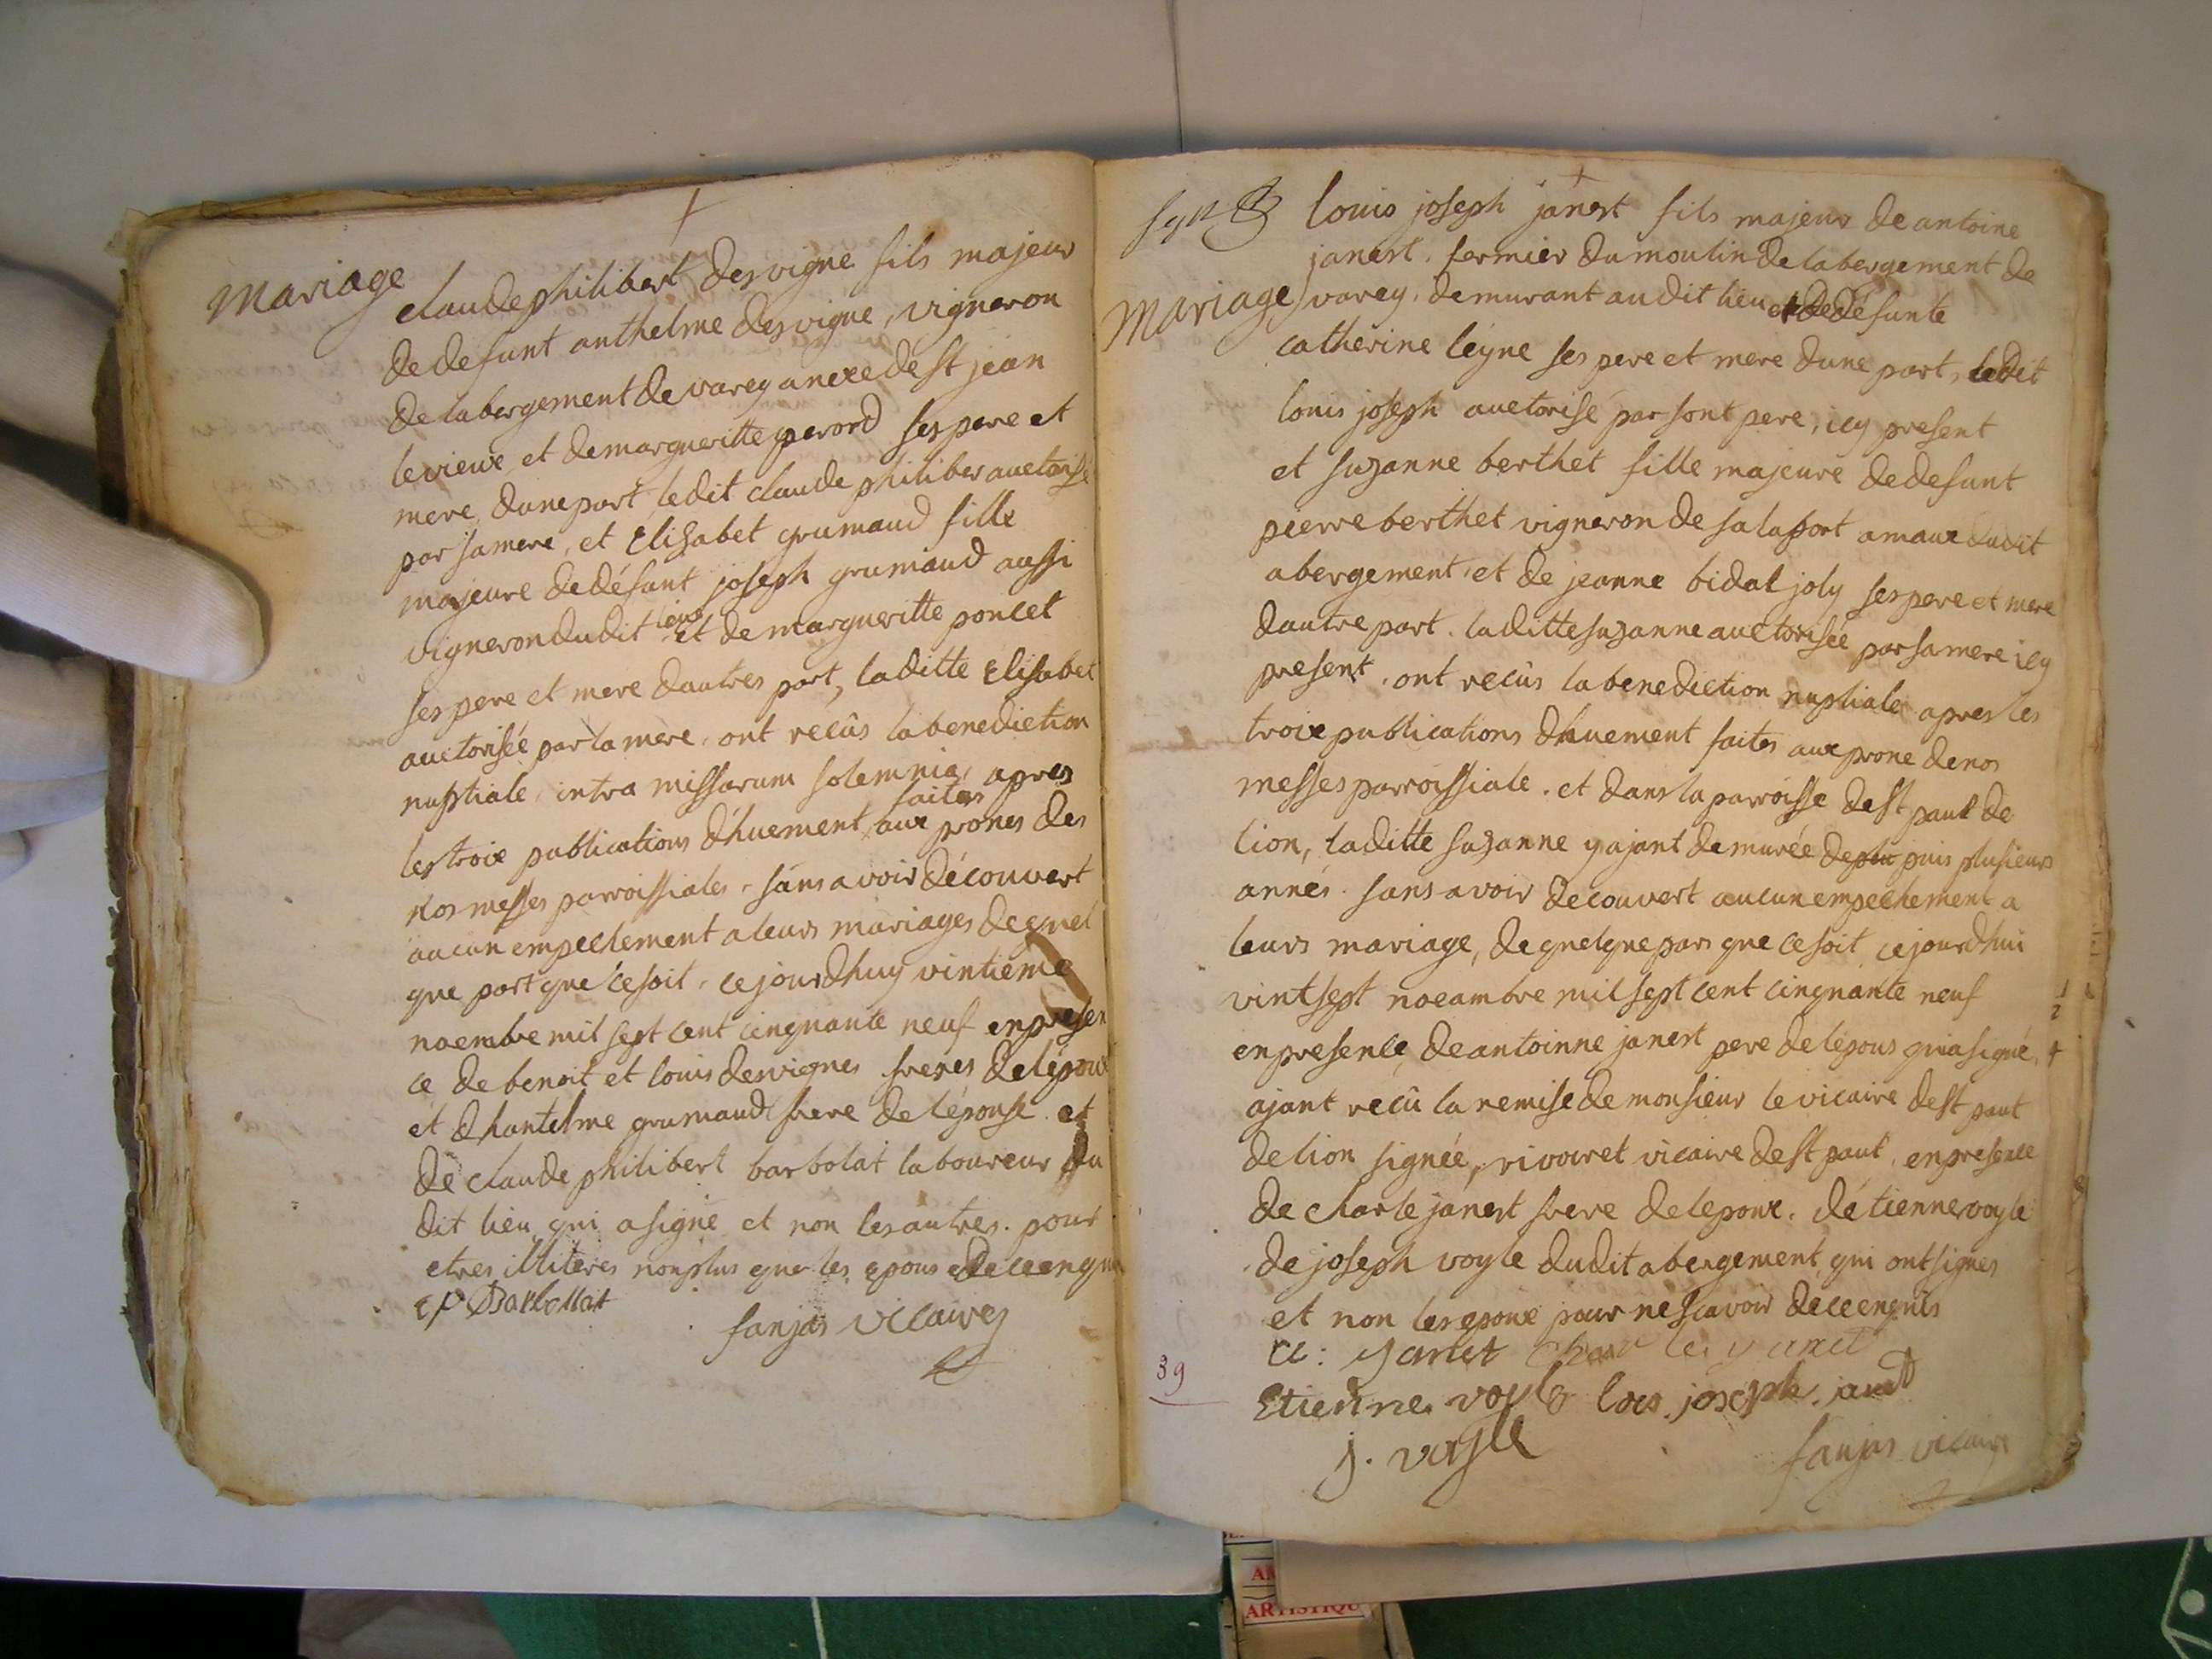 Mariage
claude philibert desvigne fils majeur
de defunt anthelme desvigne, vigneron
de labergement de varey anexe de st jean
le vieux et de margueritte perord ses pere et
mere, dune part, ledit claude philiber auctorisé
par sa mere, et Elisabet grumaud fille
majeure de défunt joseph grumaud aussi
vigneron dudit lieu et de margueritte poncet
ses pere et mere dautres part, laditte Elisabet
auctorisée par la mere, ont recûs la benediction
nuptiale, intra missarum solemnia, apres
les troix publications dhuement faites aux prones des
nos messes parroissiales, sans avoir découvert
aucun empeclement a leurs mariages de quel
que part que ce soit, ce jourdhuy vintieme
noembre mil sept cent cinquante neuf en presen
ce de benoit et louis desvignes freres de lépoux
et dhantelme grumaud frere de lépouse et
de claude philibert barbolat laboureur du
dit lieu qui a signé et non les autres. pour
etres illiteres non plus que les epous de ce enquis
c p Barbollat
fanjas vicaires
louis joseph janest fils majeur de antoine
janest, fermier du moulin de labergement de
Mariage
varey, demurant audit lieu et de défunte
catherine leyne ses pere et mere dune part, ledit
louis joseph auctorisé par sont pere, icy present
et suzanne berthet fille majeure de defunt
pierre berthet vigneron de salaport amaux dudit
abergement, et de jeanne bidal joly ses pere et mere
dautre part. laditte suzanne auctorisée par sa mere icy
present, ont recûs la benediction nuptiale apres les
troix publications dhuement faites aux prone de nos
messes parroissiale. et dans la parroisse de st paul de
lion, laditte suzanne y ajant demurée deplu puis plusieurs
annés. sans avoir decouvert aucun empechement a
leurs mariage, de quelque pars que ce soit, ce jourdhui
vint sept noeambre mil sept cent cinquante neuf
en presence, de antoinne janest pere de lépous qui a signé,
ajant recû la remise de monsieur le vicaire de st paul
de lion signée, rivoiret vicaire de st paul, en presence
de charle janest frere de lepoux. détienne voyle
de joseph voyle dudit abergement, qui ont signes
et non les epoux pour ne scavoir de ce enquis
a: janet charle janet
39
Etienne voyle loes joseph janet
j. voyle
fanjas vicaire